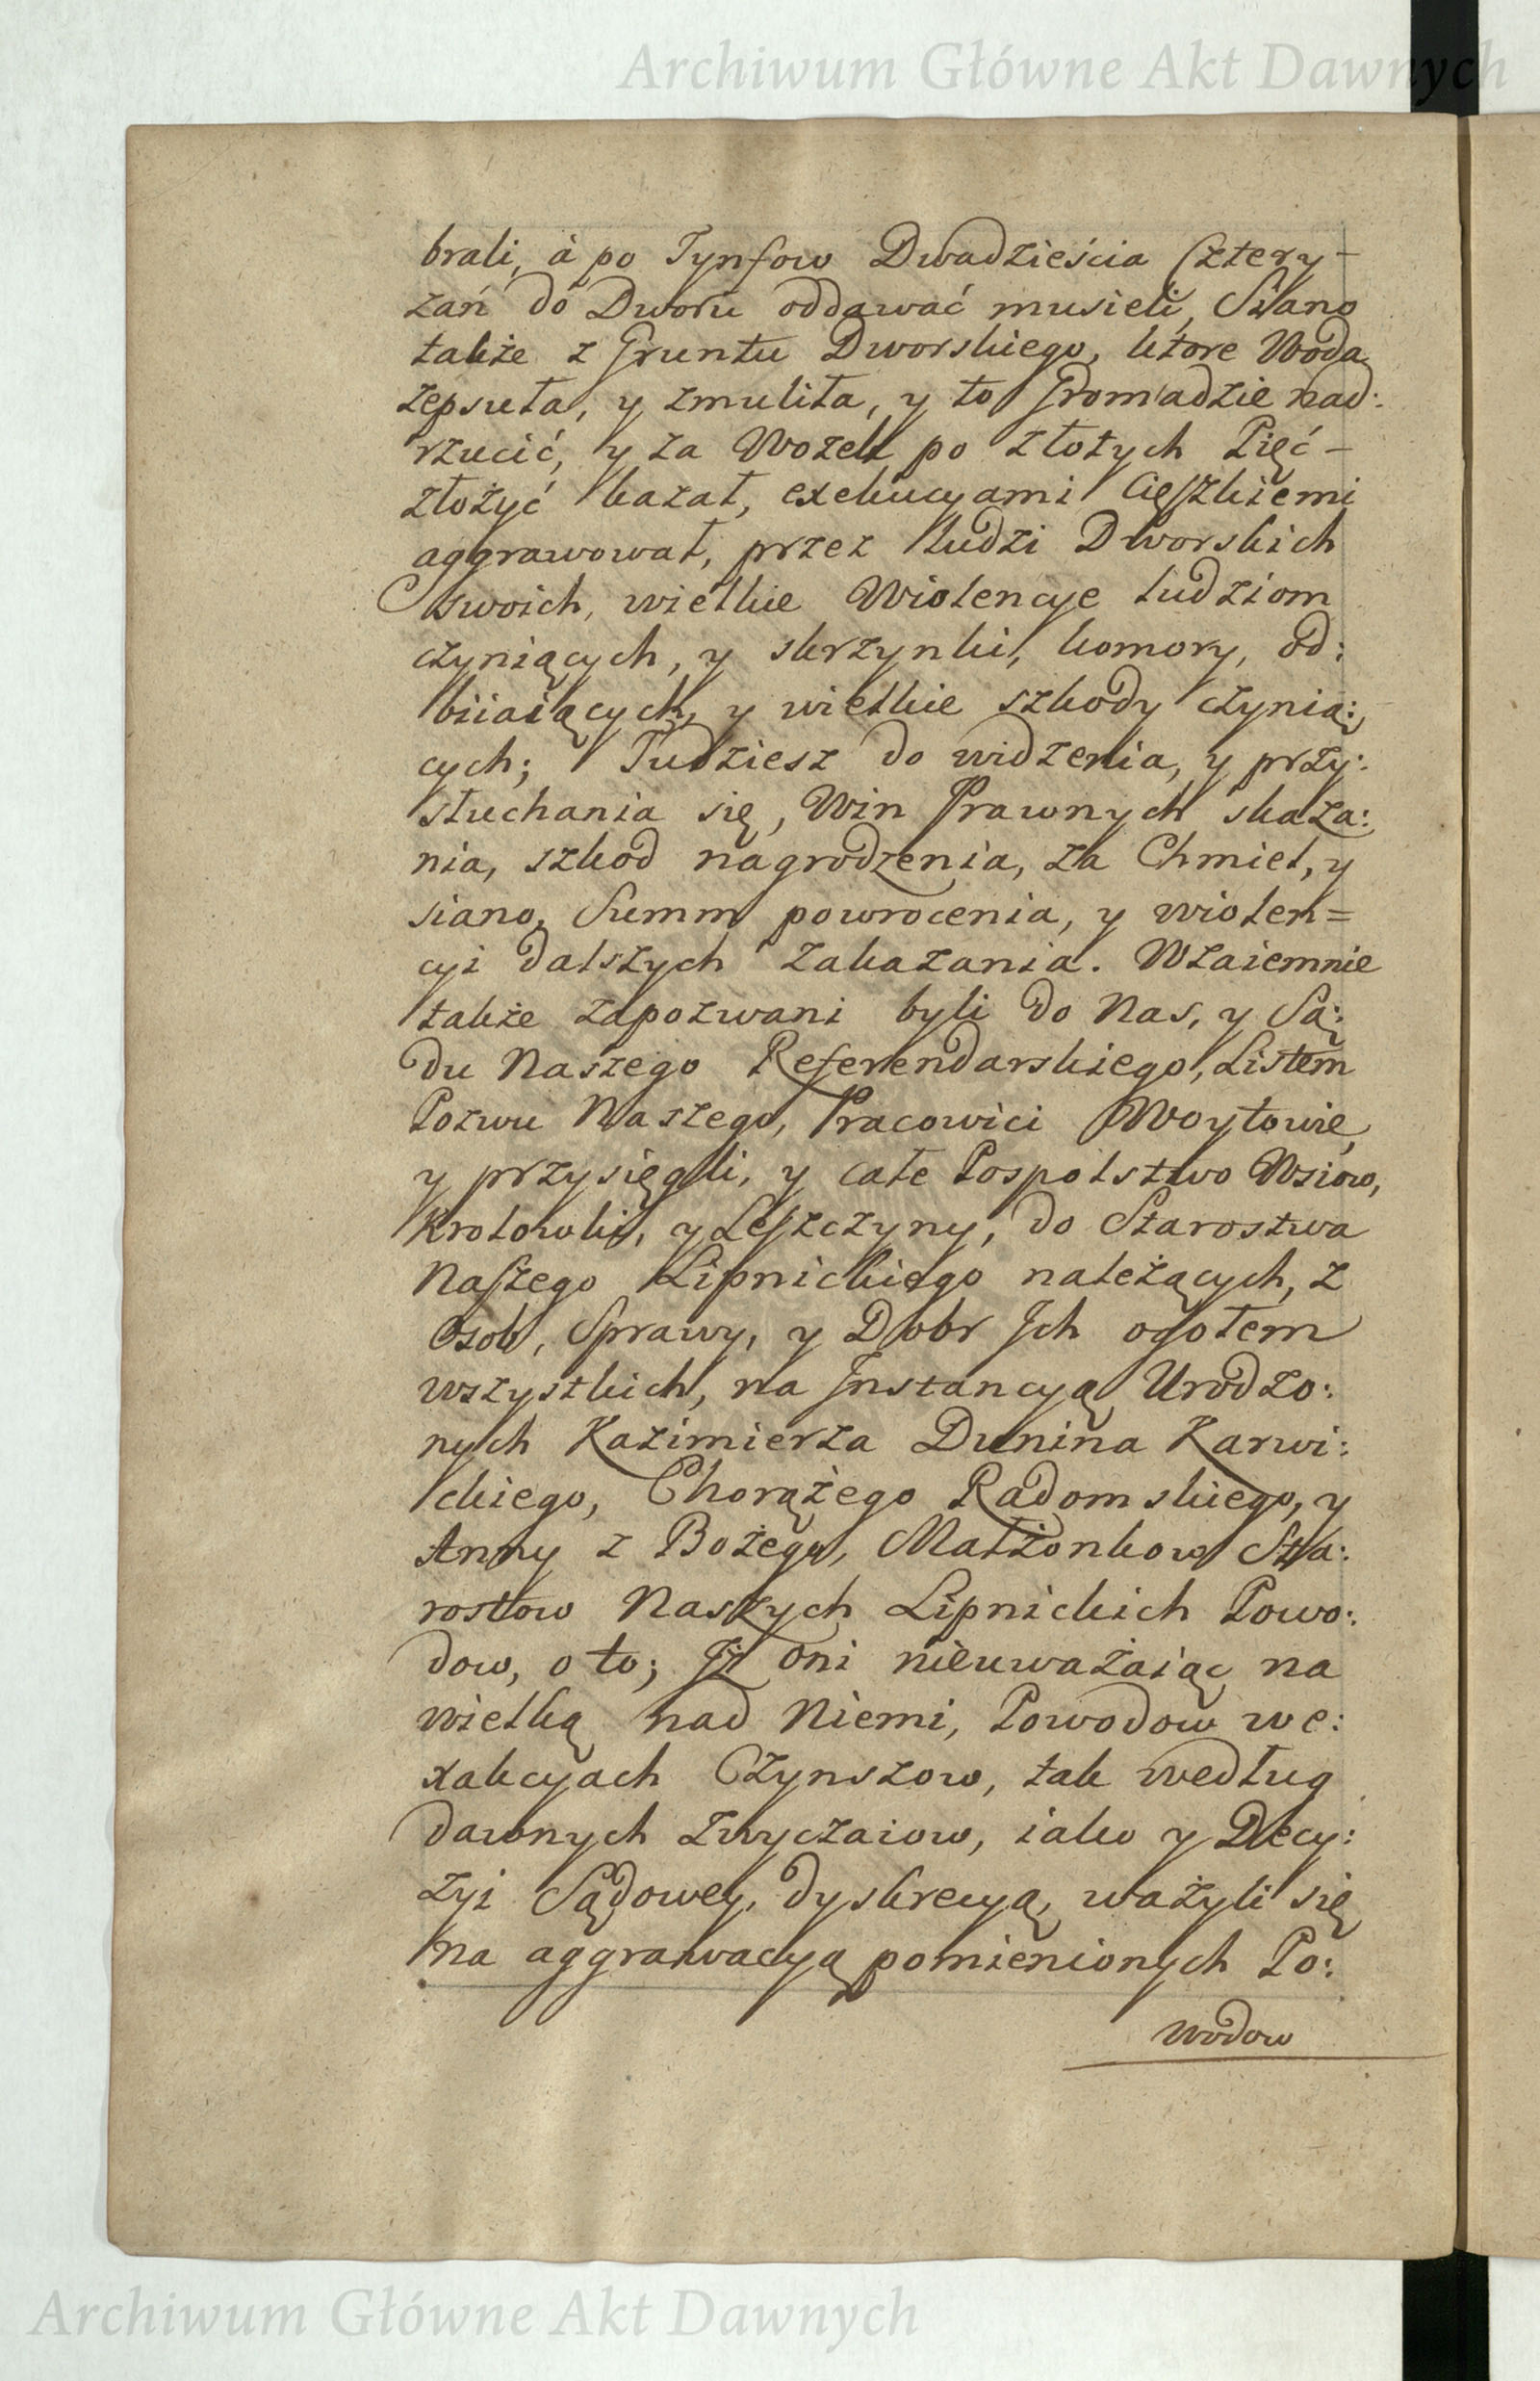 Archiwum Główne Akt Dawnych
brali, à po Tynfow Dwadzieścia Cztery –
zań do Dworu oddawać musieli, Siano
także z Gruntu Dworskiego, ktore Woda
zepsuła, y zmuliła, y to Gromadzie nad:
rzucić, y za Wozek po złotych Pięć –
złożyć kazał, exekucyami Cięszkiemi
aggrawował, przez ludzi Dworskich
swoich, wielkie Wiolencye ludziom
czyniących, y skrzynki, komory, od:
biiaiących, y wielkie szkody czynią:
cych; Tudziesz do widzenia, y przy:
słuchania się, Win Prawnych skaza:
nia, szkod nagrodzenia, za Chmiel, y
siano, Summ powrocenia, y wiolen=
cyi dalszych zakazania. Wzaiemnie
także zapozwani byli do Nas, y Są:
du Naszego Referendarskiego, Listem
Pozwu Naszego, Pracowici Woytowie,
y przysięgli, y całe Pospolstwo Wsiow,
Krolowki, y Leszczyny, do Starostwa
Naszego Lipnickiego należących, z
Osob, Sprawy, y Dobr Ich ogołem
wszystkich, na Instancyą Urodzo:
nych Kazimierza Dunina Karwi:
ckiego, Chorążego Radomskiego, y
Anny z Bożego, Małżonkow Sta:
rostow Naszych Lipnickich Powo:
dow, o to; Iż oni nieuważaiąc na
wielką nad Niemi, Powodow we:
xakcyach Czynszow, tak według
dawnych zwyczaiow, iako y Decy:
zyi Sądowey, dyskrecyą, ważyli się
na aggrawacyą pomienionych Po:
wodow
Archiwum Główne Akt Dawnych